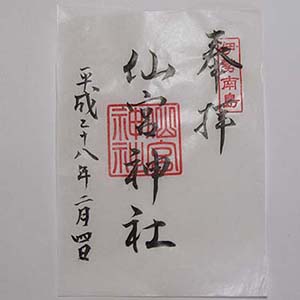 奉拝
伊勢南島
仙宮神社
仙宮神社
平成二十八年二月四日